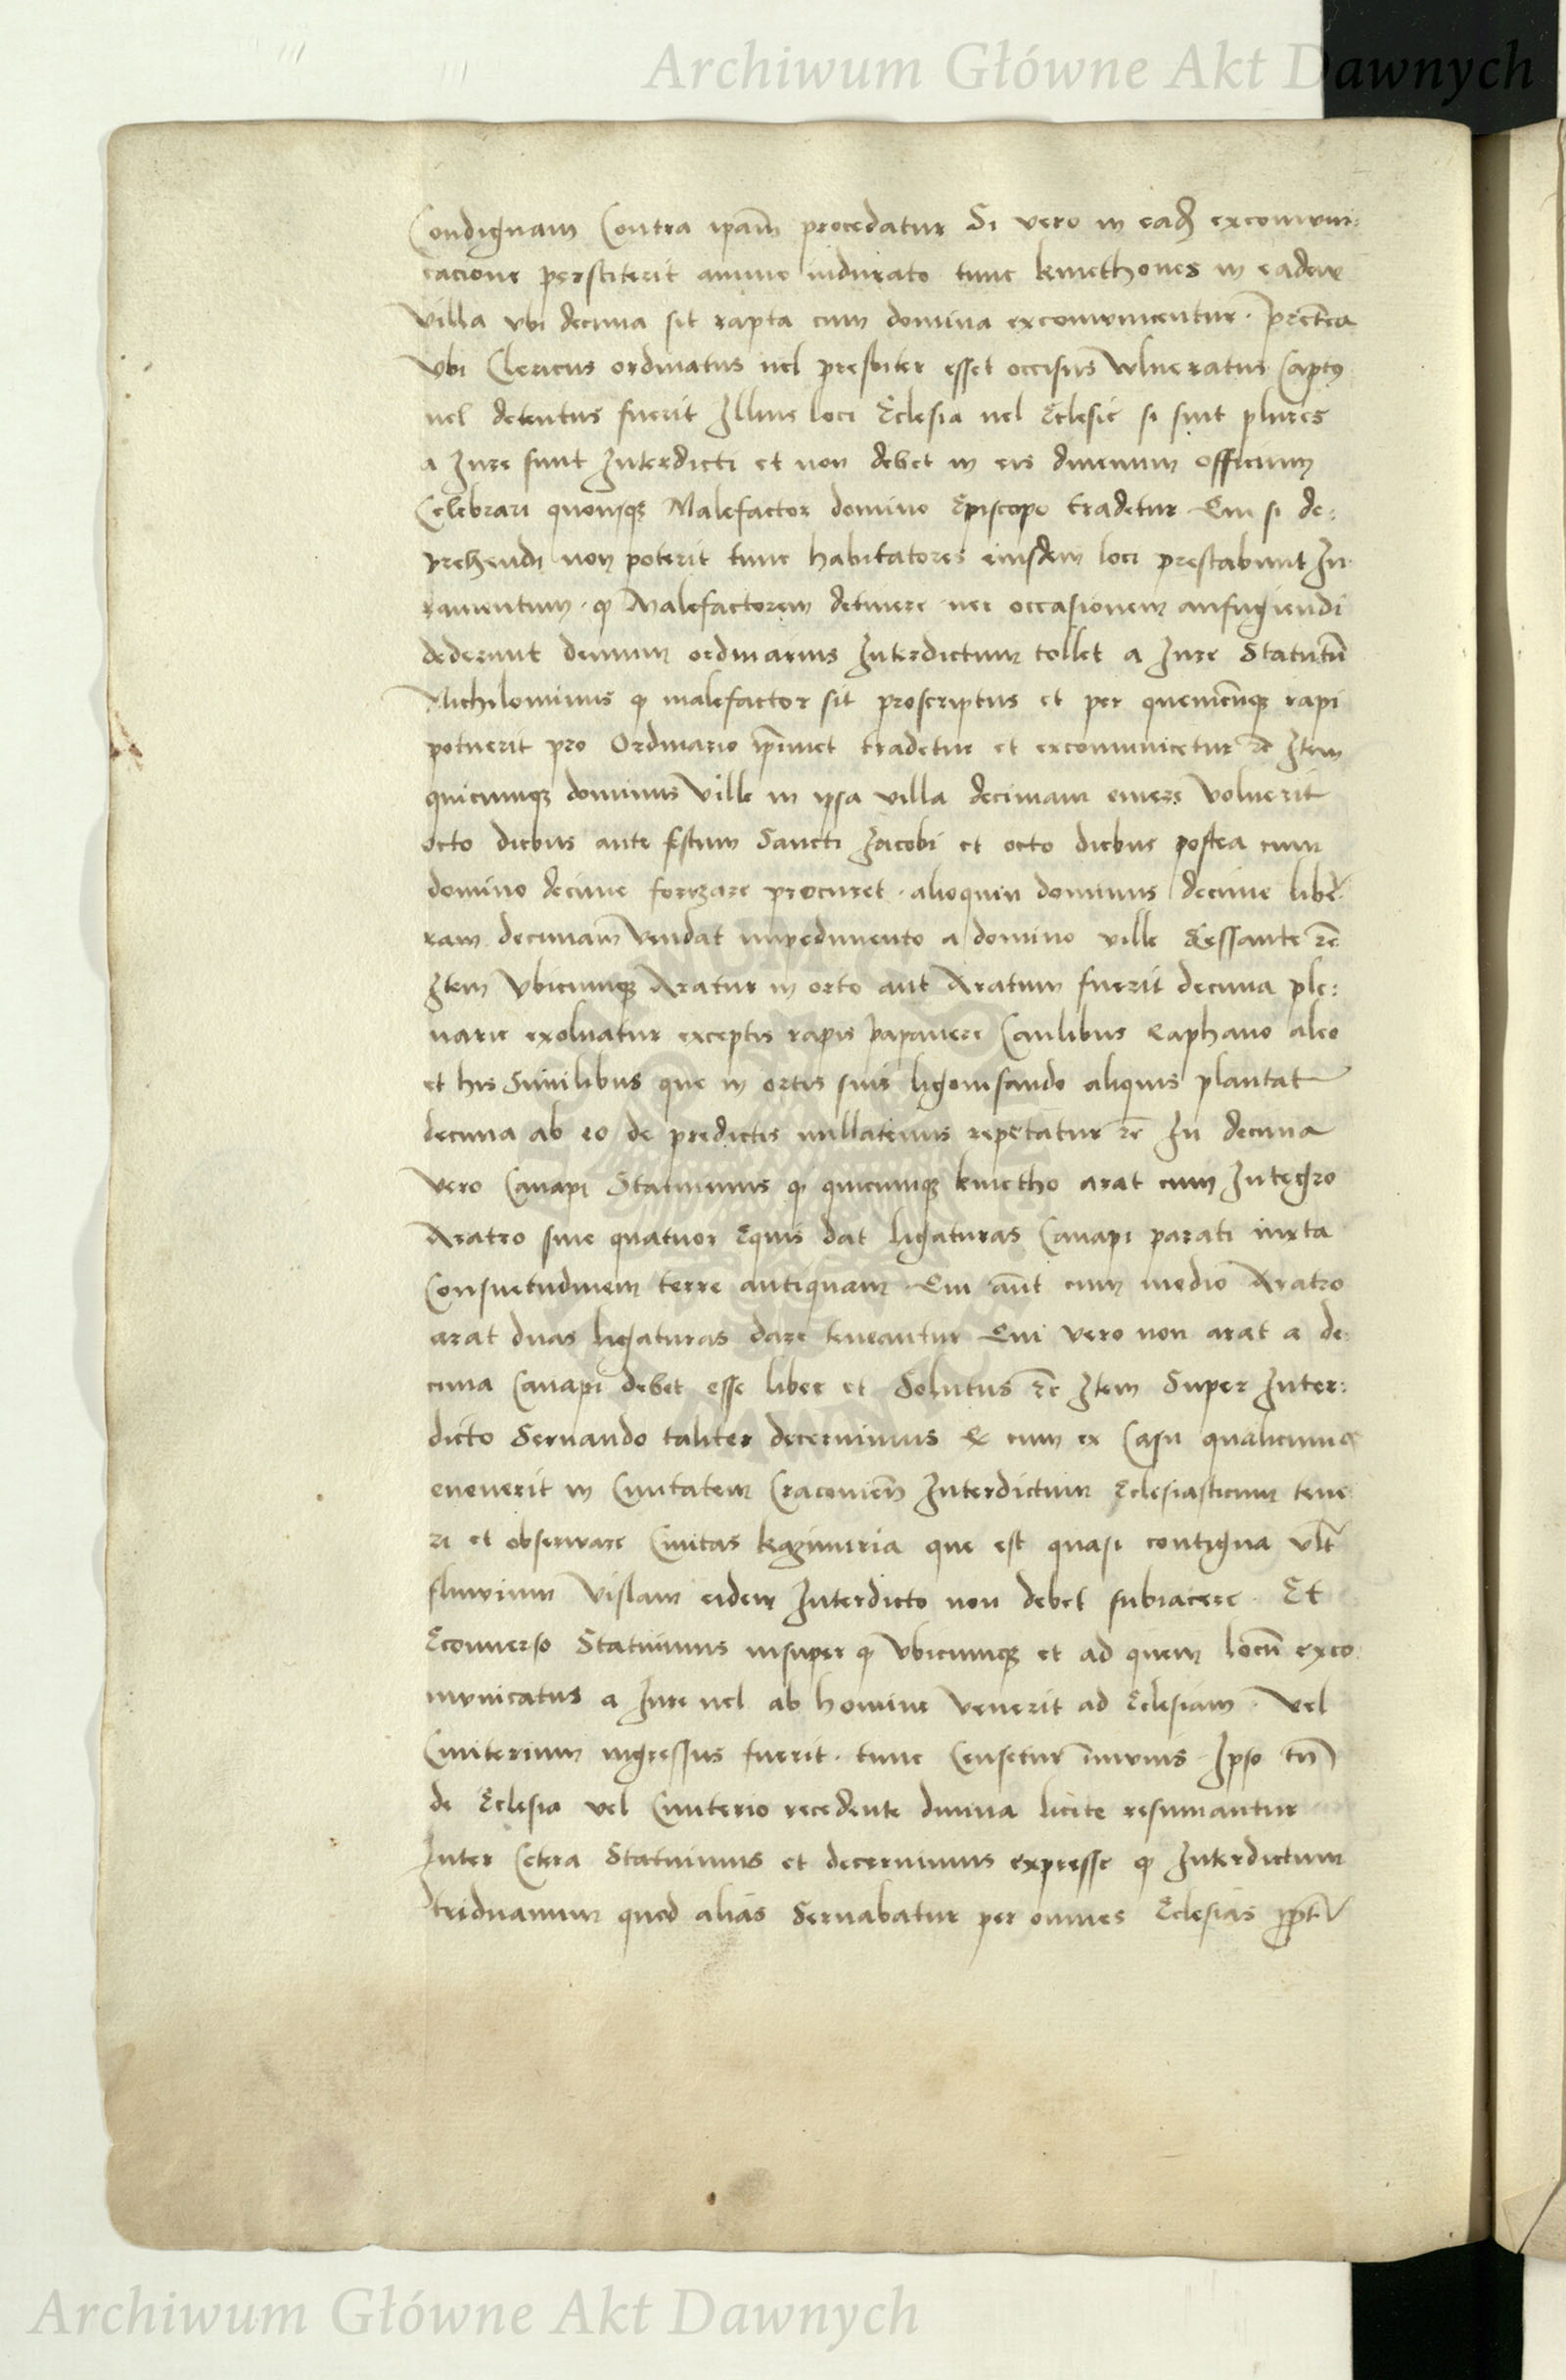 Archiwum Główne Akt Dawnych
Condignam Contra ipam̄ procedatur Si vero in eadꝫ excomuni:
cacione perstiterit animo indurato tunc kmethones in eadem
Villa vbi decima sit rapta cum domina excommunicentur. Pretea
Vbi Clericus ordinatus uel presbiter esset occisus Wlneratus Captꝯ
uel detentus fuerit Illius loci Eclesia uel Eclesie si sint plures
a Iure sunt Interdicti et non debet in eis diuinum officium
Celebrari quousqꝫ Malefactor domino Episcopo tradetur Qui si de:
prehendi non poterit tunc habitatores eiusdem loci prestabunt Iu
ramentum. ꝙ Malefactorem detinere nec occasionem aufugiendi
dederunt demum ordinarius Interdictum tollet a Iure Statutū
Nichilominus ꝙ malefactor sit proscriptus et per quemcūqꝫ rapi
potuerit pro Ordinario ip̄imet tradetur et excomunicetur ꝛc̄ Item
quicumqꝫ dominus Ville in ipsa villa decimam emere Voluerit
octo diebus ante festum Sancti Iacobi et octo diebus postea cum
domino decime forizare procuret. alioquin dominus decime libe:
ram decimam Vendat impedimento a domino ville Cessante ꝛc̄
Item Vbicumqꝫ Aratur in orto aut Aratum fuerit decima ple:
narie exoluatur exceptis rapis papauere Caulibus Raphano aleo
et his Similibus que in ortis suis ligonisando aliquis plantat
decima ab eo de predictis nullatenus repetatur ꝛc̄ In decima
Vero Canapi Statuimus ꝙ quicumqꝫ kmetho arat cum Integro
Aratro siue quatuor Equis dat ligaturas Canapi parati iuxta
Consuetudinem terre antiquam. Qui aūt cum medio Aratro
arat duas ligaturas dare teneantur Qui vero non arat a de:
cima Canapi debet esse liber et Solutus ꝛc̄ Item Super Inter:
dicto Seruando taliter decernimus ꝙ cum ex Casu qualicumqꝫ
euenerit in Ciuitatem Cracouien̄ Interdictum Eclesiasticum tene
ri et obseruare Ciuitas kazimiria que est quasi contigua vlt̄
fluuium Vislam eidem Interdicto non debet subiacere. Et
Econuerso Statuimus insuper ꝙ Vbicumqꝫ et ad quem locū exco
municatus a Iure uel ab homine Venerit ad Eclesiam. Vel
Cimiterium ingressus fuerit. tunc Censetur immunis. Ipso tn̄
de Eclesia vel Cimiterio recedente diuina licite resumantur
Inter Cetera Statuimus et decernimus expresse ꝙ Interdictum
triduanum quod alias Seruabatur per omnes Eclesias ꝓpt̄
Archiwum Główne Akt Dawnych